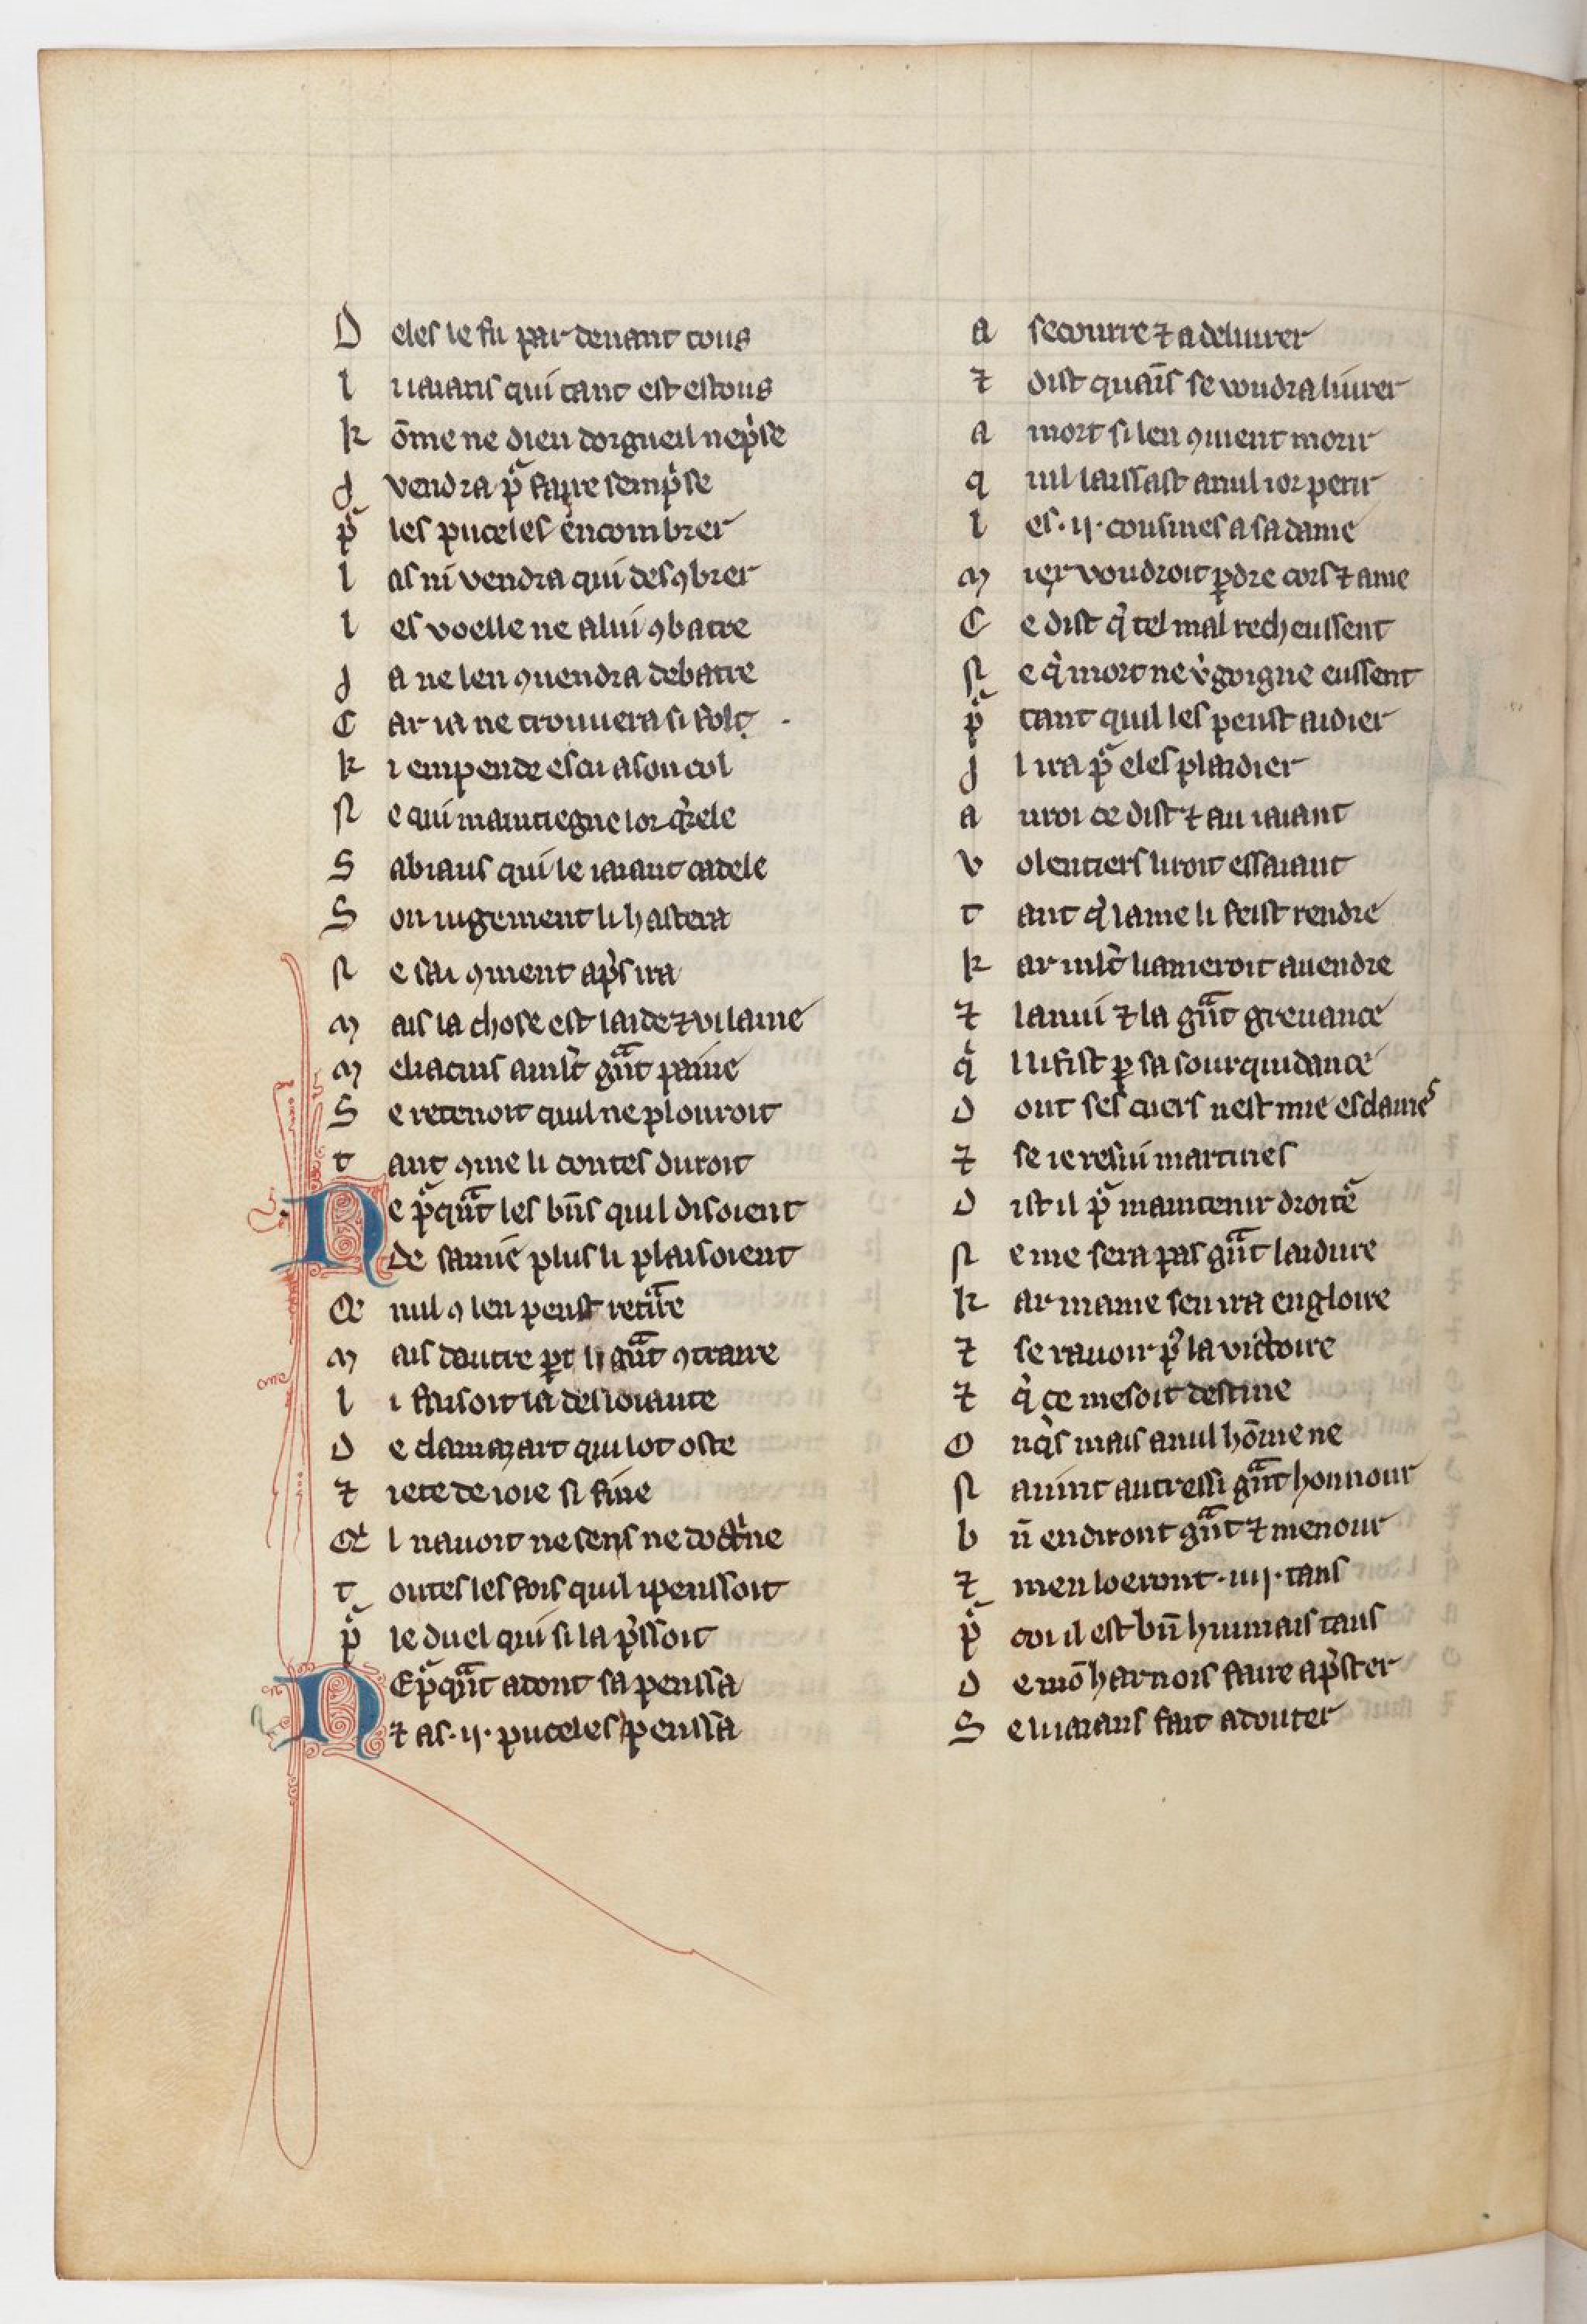 D eles le fu par deuant tous
l i iaians qui tant est estous
k õme ne dieu dorgueil ne pͥse
J vendra pͣ faire sempͥse
pͣ les puceles encombrer
l as ni vendra qui desꝯbrer
l es voelle ne a lui ꝯbatre
J a ne len ꝯuendra debatre
C ar ia ne trouuera si fol
k i enpende escu a son col
N e qui maintiegne lor qͥrele
S abiaus qui le iaiant cadele
S on iugement li hastera
N e sai ꝯment apͥs ira
M ais la chose est laide ⁊ vilaine
M eliacins a mlt̄ gͣnt paine
S e retenoit quil ne plouroit
t ant ꝯme li contes duroit
Ne pͣqͣnt les bñs quil disoient
de samie plus li plaisoient
Q̃ nul ꝯ len peust retͣire
M ais dautre ꝑt li gͣnt ꝯtraire
l i faisoit la desioiance
D e clamazart qui lot oste
⁊ iete de ioie si fine
Q̃ l nauoit ne sens ne doctͥne
t outes les fois quil ipenssoit
pͣ le duel qui si la pͥssoit
NE pͣqͣnt adont sa penssa
⁊ as ·ij· puceles penssa
a secourre ⁊ a deliurer
⁊ dist quaīs se voudra liurer
a mort si len ꝯuient morir
q uil laissast a nul ior perir
l es ·ij· cousines a sa dame
M iex voudroit ꝑdre cors ⁊ ame
C e dist qͥ tel mal recheussent
N e qͥ mort ne ṽgoigne eussent
pͣ tant quil les peust aidier
J l ira pͣ eles plaidier
a u roi ce dist ⁊ au iaiant
v olentiers liroit essaiant
t ant qͥ lame li feist rendre
k ar mlt̄ li ameroit a uendre
⁊ lanui ⁊ la gͣnt greuance
qͥ l li fist ꝑ sa sourquidance
D ont ses cuers nest mie es dames
⁊ se ie resui martires
D ist il pͣ maintenir droitẽ
N e me sera pas gͣnt laidure
k ar mame sen ira en gloire
⁊ se rauoir pͦ la victoire
⁊ qͥ ce me soit destine
O nqͥs mais a nul hõme ne
N auint autressi gͣnt honnour
b ñ en diront gͣnt ⁊ menour
⁊ men loeront ·iiij· tans
pͣ coi il est bñ huimais tans
D e mõ harnois faire apͥster
S e li iaians fait a douter